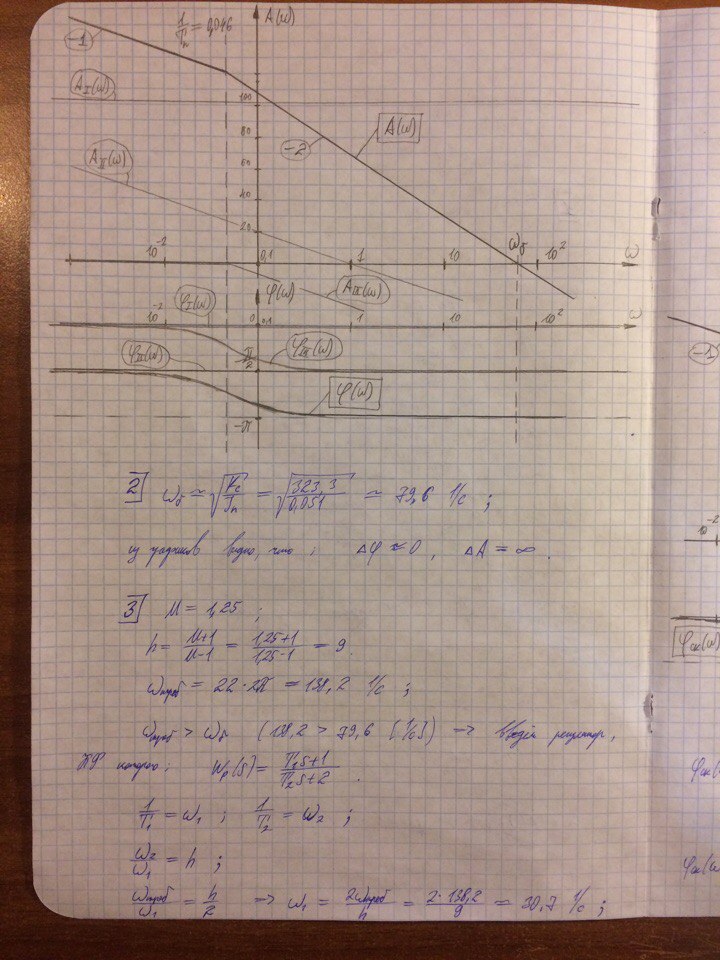 1/Tп = 0,016 A(ω)
-1
A_I(ω)
100
A(ω)
80
-2
A_II(ω)
60
40
20
ω_б
10^-2 0,1 1 10 10^2 ω
φ(ω) A_III(ω)
φ_I(ω)
10^-2 0 0,1 1 10 10^2 ω
φ_II(ω) -π/2 φ_III(ω)
φ(ω)
-π
2 ω_б ≈ √(Kc/Jп) = √(323,3/0,051) ≈ 79,6 1/с ;
из графиков видно, что : Δφ ≈ 0 , ΔA = ∞ .
3 M = 1,25 ;
h = (M+1)/(M-1) = (1,25+1)/(1,25-1) = 9 .
ω_треб = 22 · 2π = 138,2 1/с ;
ω_треб > ω_б (138,2 > 79,6 [1/с]) → введём регулятор,
ПФ которого : W_p(s) = (T₁s+1)/(T₂s+2) .
1/T₁ = ω₁ ; 1/T₂ = ω₂ ;
ω₂/ω₁ = h ;
ω_треб/ω₁ = h/2 → ω₁ = 2ω_треб/h = 2·138,2/9 = 30,7 1/с ;
-1
10^-2
φ_ск(ω)